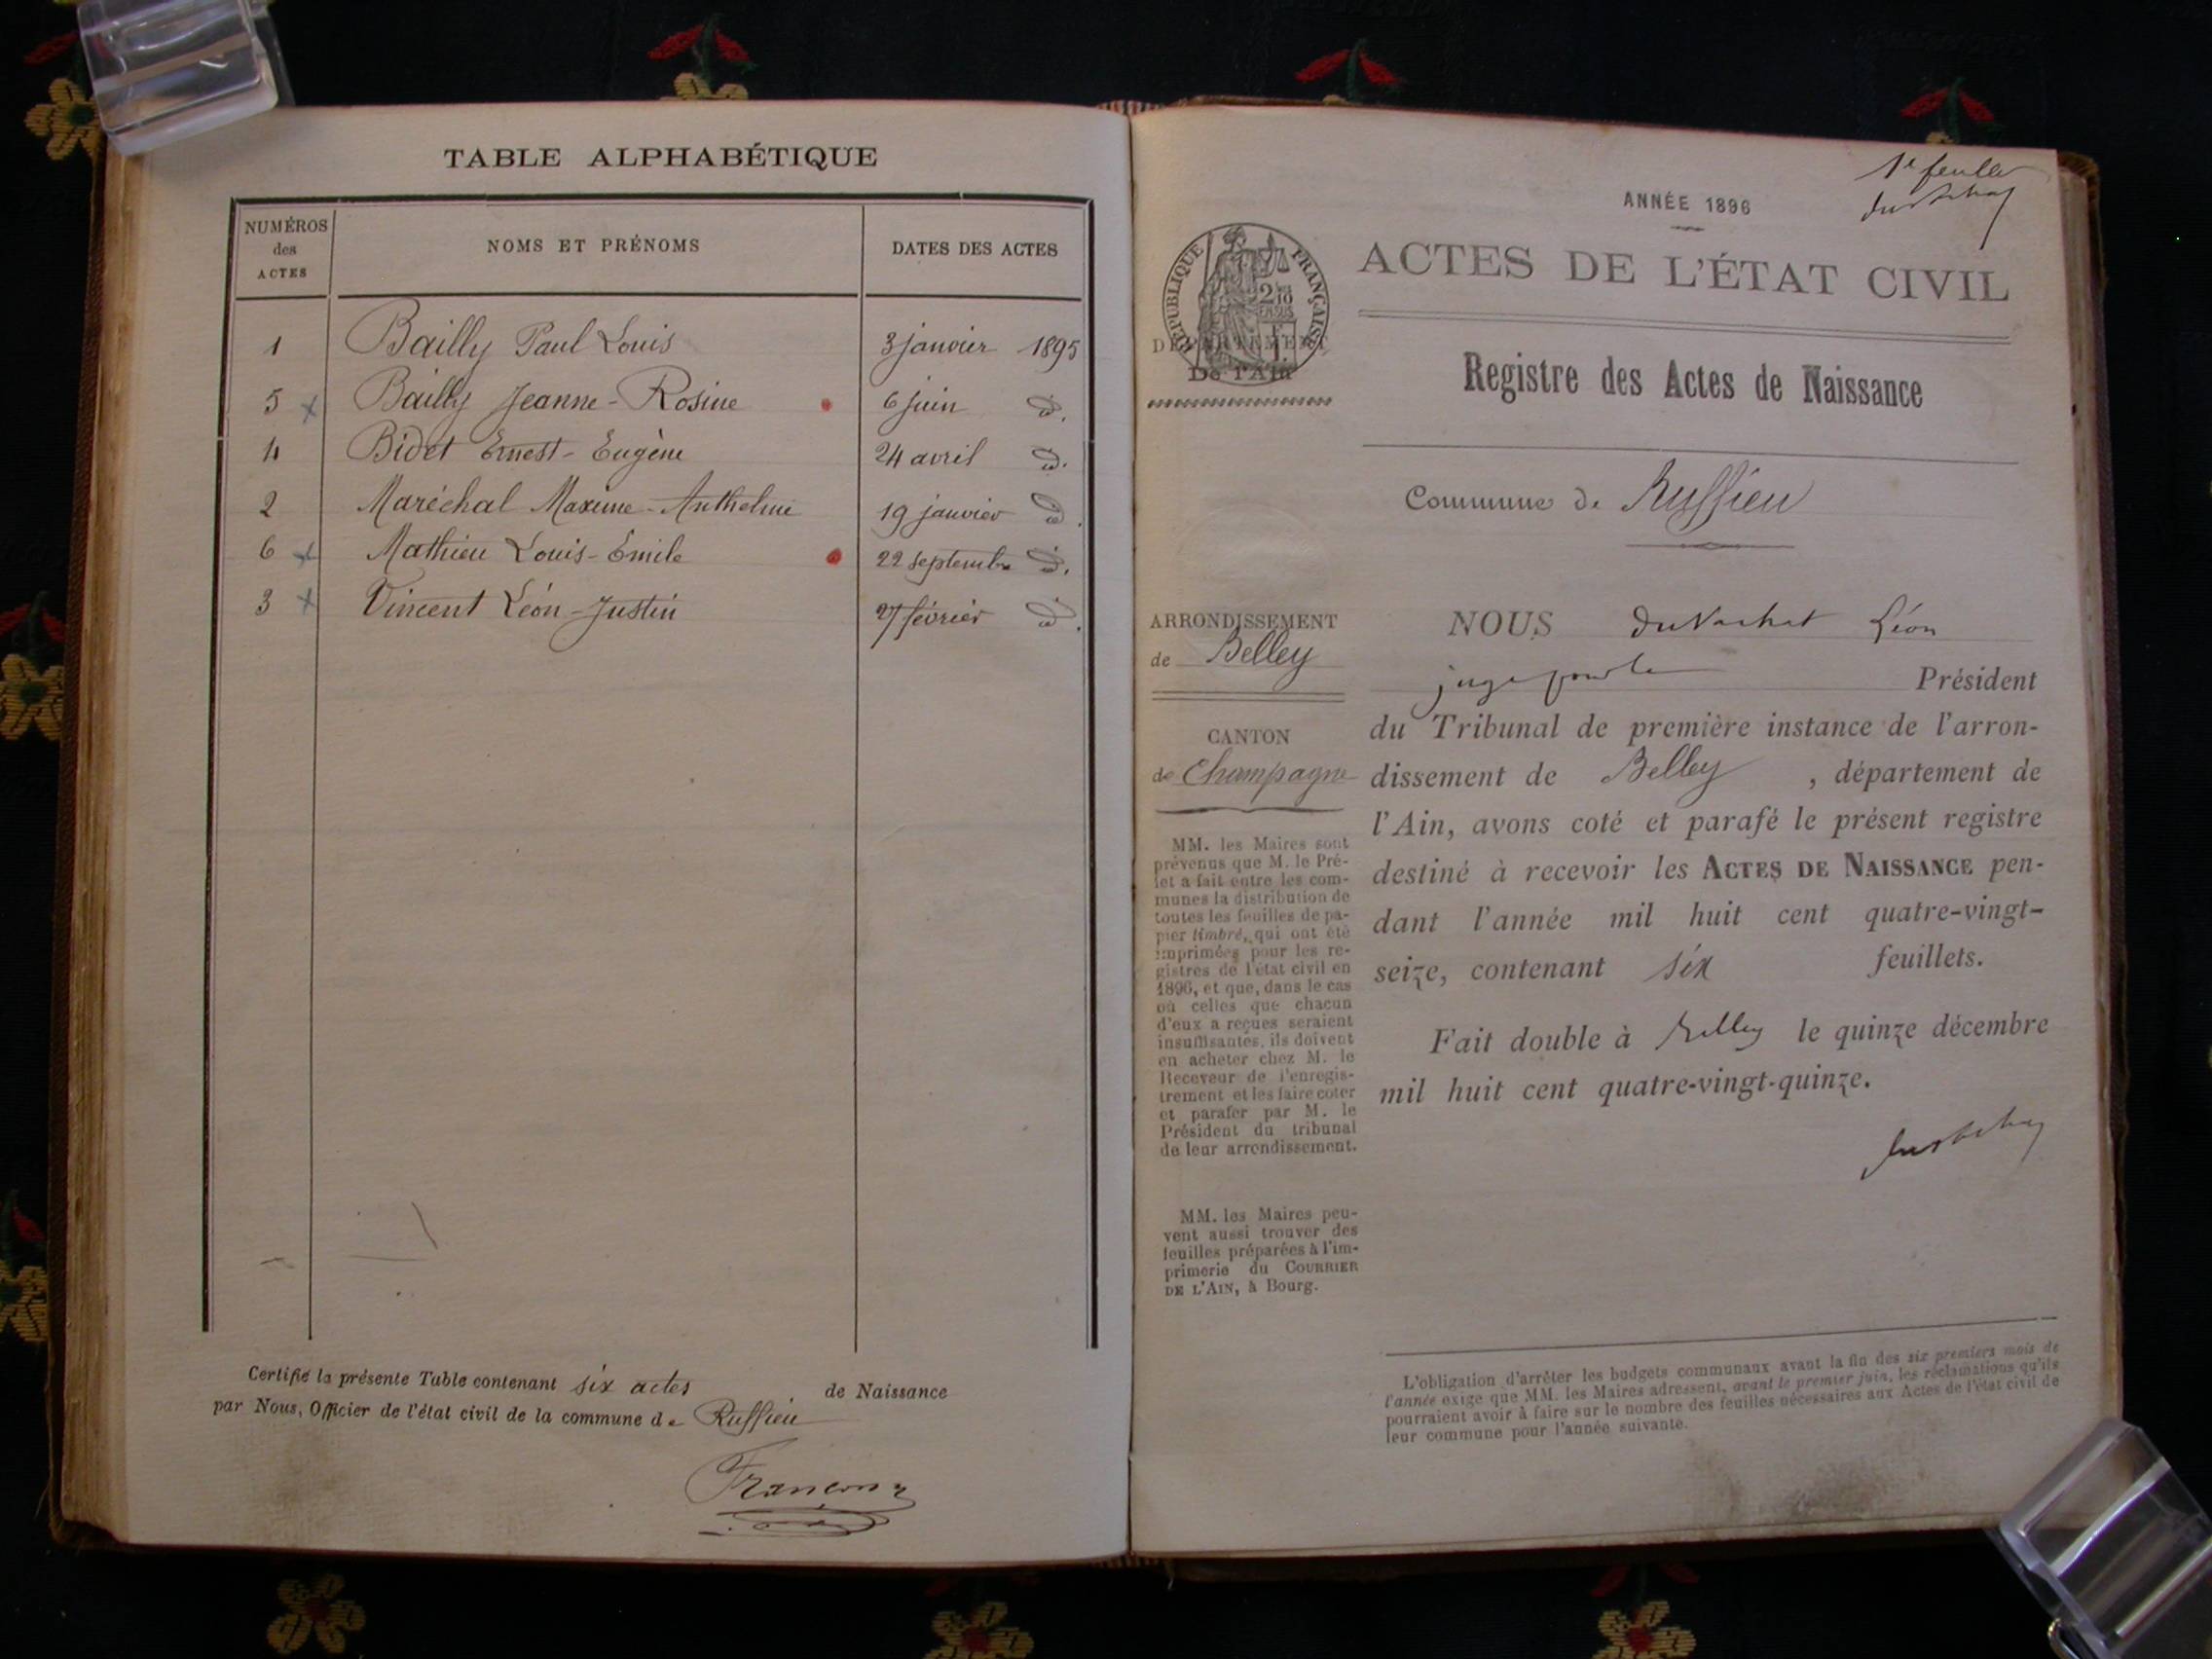 TABLE ALPHABÉTIQUE
NUMÉROS
des
ACTES
NOMS ET PRÉNOMS
DATES DES ACTES
1 Bailly Paul Louis 3 janvier 1895
5 Bailly Jeanne-Rosine 6 juin d.
4 Bidet Ernest-Eugène 24 avril d.
2 Maréchal Maxime-Anthelme 19 janvier d.
6 Mathieu Louis-Émile 22 septembre d.
3 Vincent Léon-Justin 27 février d.
Certifié la présente Table contenant six actes de Naissance
par Nous, Officier de l'état civil de la commune de Ruffieu
Françon
1er feuillet
ANNÉE 1896
RÉPUBLIQUE FRANÇAISE
ACTES DE L'ÉTAT CIVIL
DÉPARTEMENT
De l'Ain
Registre des Actes de Naissance
Commune de Ruffieu
ARRONDISSEMENT
de Belley
CANTON
de Champagne
MM. les Maires sont
prévenus que M. le Pré-
fet a fait entre les com-
munes la distribution de
toutes les feuilles de pa-
pier timbré, qui ont été
imprimées pour les re-
gistres de l'état civil en
1896, et que, dans le cas
où celles que chacun
d'eux a reçues seraient
insuffisantes, ils doivent
en acheter chez M. le
Receveur de l'enregis-
trement et les faire coter
et parafer par M. le
Président du tribunal
de leur arrondissement.
MM. les Maires peu-
vent aussi trouver des
feuilles préparées à l'im-
primerie du COURRIER
DE L'AIN, à Bourg.
NOUS Duvachat Léon
juge pour le Président
du Tribunal de première instance de l'arron-
dissement de Belley , département de
l'Ain, avons coté et parafé le présent registre
destiné à recevoir les ACTES DE NAISSANCE pen-
dant l'année mil huit cent quatre-vingt-
seize, contenant six feuillets.
Fait double à Belley le quinze décembre
mil huit cent quatre-vingt-quinze.
L'obligation d'arrêter les budgets communaux avant la fin des six premiers mois de
l'année exige que MM. les Maires adressent, avant le premier juin, les réclamations qu'ils
pourraient avoir à faire sur le nombre des feuilles nécessaires aux Actes de l'état civil de
leur commune pour l'année suivante.